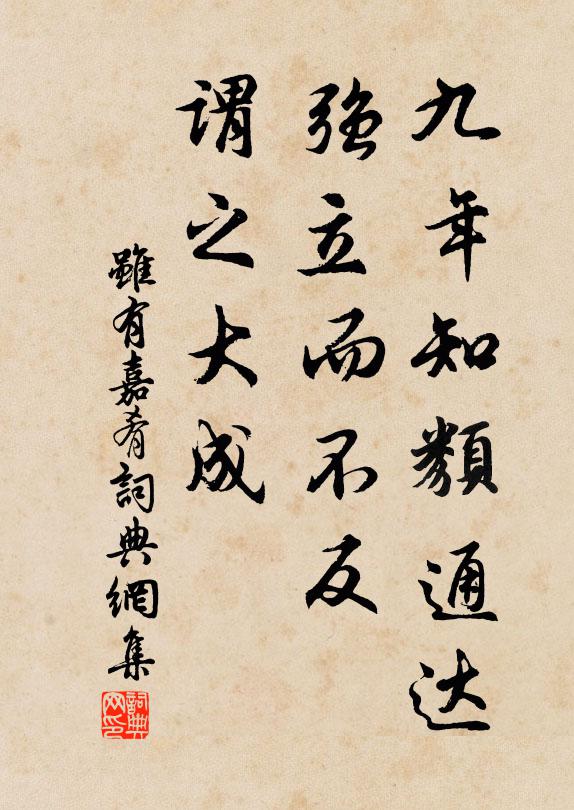 九年知類通达
强立而不反
谓之大成
雖有嘉肴詞典網集
詞典网印